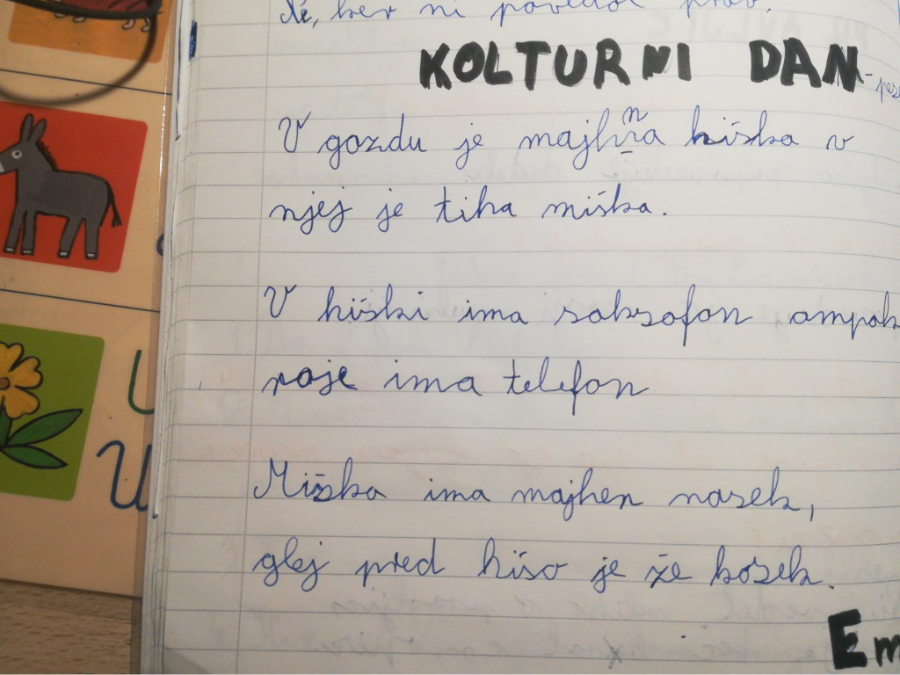 Ne, ker ni povedal prav.
KOLTURNI DAN
V gozdu je majhna hiška v
njej je tiha miška.
V hiški ima saksofon, ampak
raje ima telefon
Miška ima majhen nosek,
glej pred hišo je že kosek.
Em